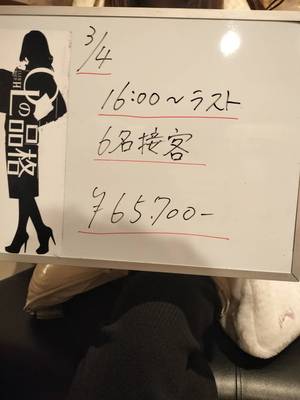 3/4
16:00~ラスト
6名接客
¥65.700-
品格